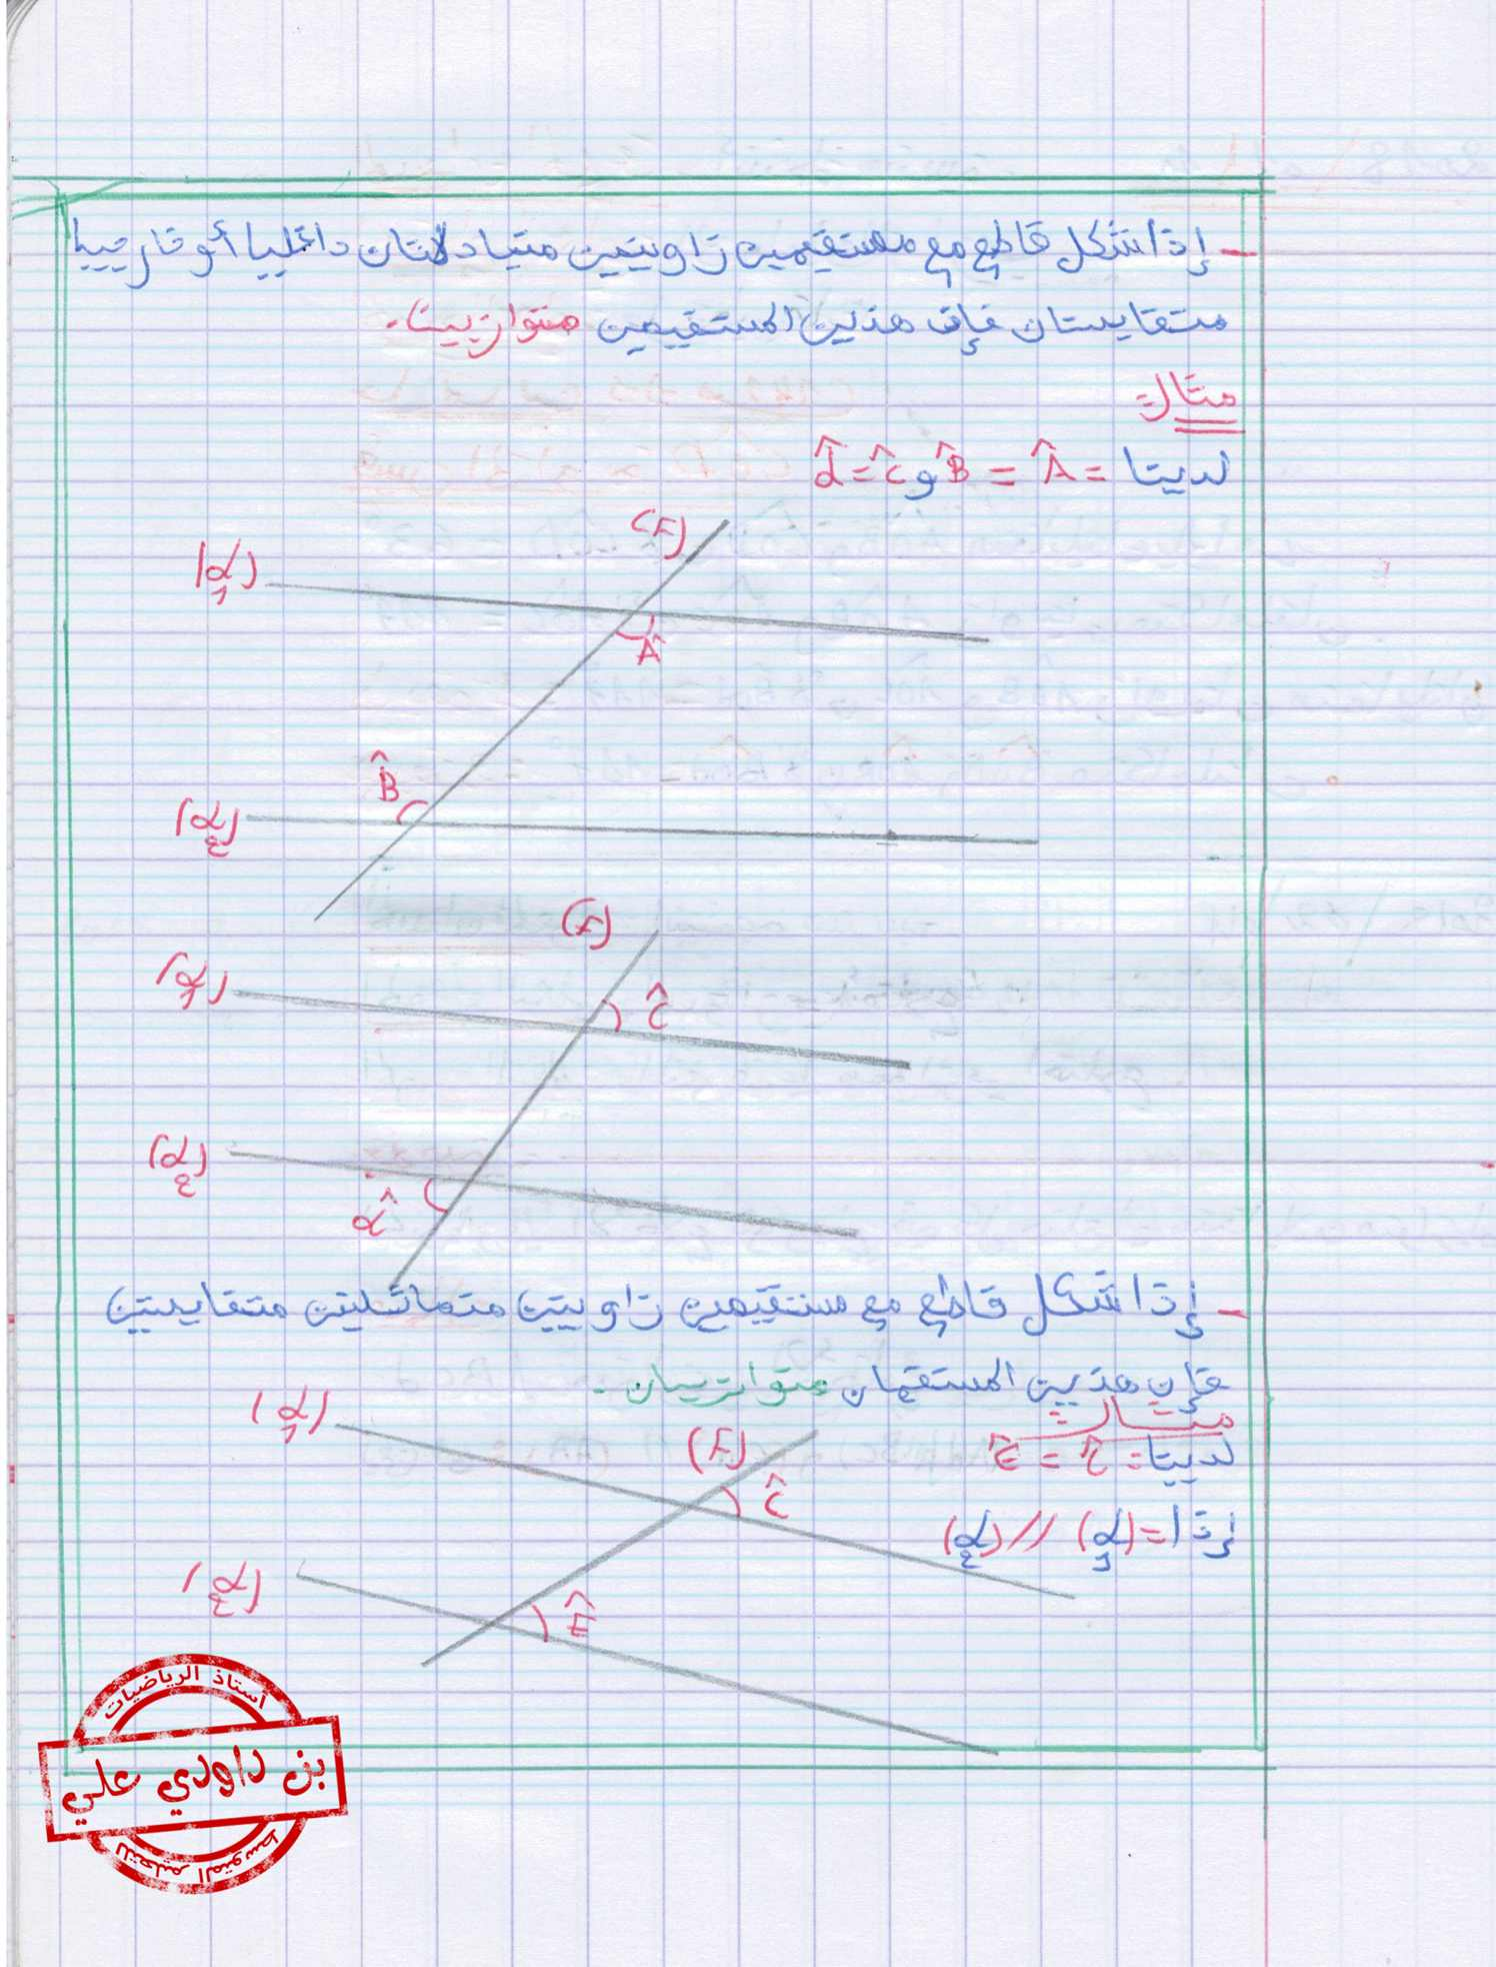 - إذا شكل قاطع مع مستقيمين زاويتين متبادلتان داخليا أو خارجيا
متقايستان فإن هذين المستقيمين متوازيين.
مثال:
لدينا = Â = B̂ و ĉ = d̂
(F)
(d1)
Â
B̂
(d2)
(F)
(d1)
ĉ
(d2)
d̂
- إذا شكل قاطع مع مستقيمين زاويتين متماثليتن متقايستين
فإن هذين المستقمان متوازيان.
مثال:
لدينا: ĉ = Ê
إذا = (d1) // (d2)
(d1)
(F)
ĉ
(d2)
Ê
أستاذ الرياضيات
بن داودي علي
للتعليم المتوسط